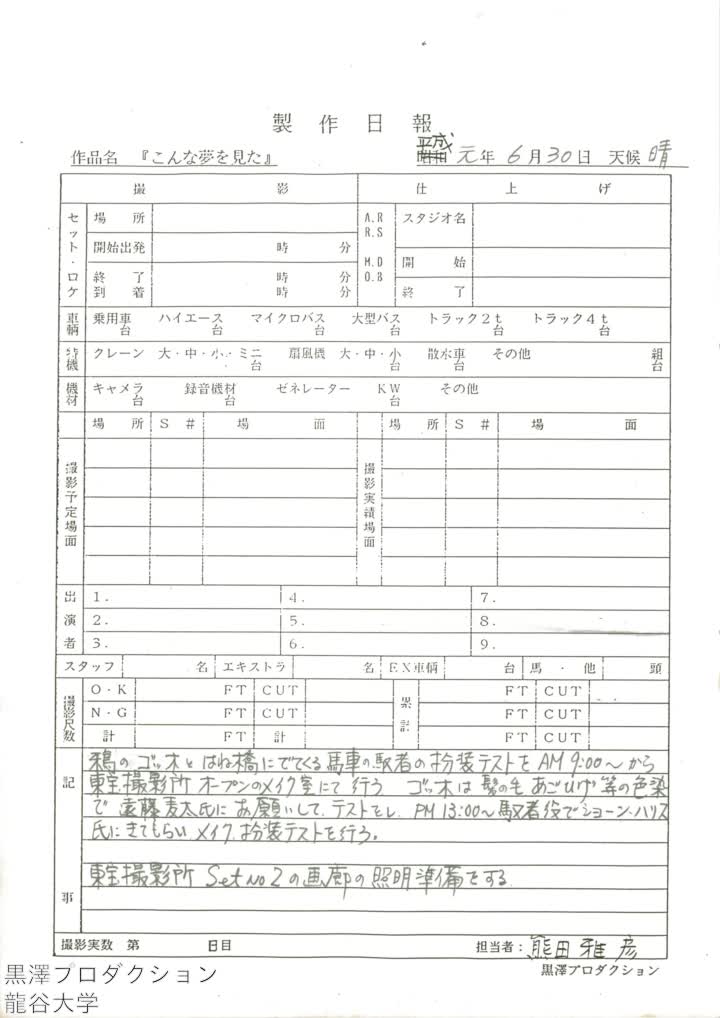 製作日報
作品名 『こんな夢を見た』 平成 元年 6月30日 天候 晴
撮影 仕上げ
セット・ロケ 場所 A.R R.S スタジオ名
開始出発 時 分
M.D O.B 開始
終了 時 分
到着 時 分 終了
車輌 乗用車 台 ハイエース 台 マイクロバス 台 大型バス 台 トラック2t 台 トラック4t 台
特機 クレーン 大・中・小・ミニ 台 扇風機 大・中・小 台 散水車 台 その他 組 台
機材 キャメラ 台 録音機材 台 ゼネレーター KW 台 その他
場所 S# 場面 場所 S# 場面
撮影予定場面 撮影実績場面
出演者 1. 4. 7.
2. 5. 8.
3. 6. 9.
スタッフ 名 エキストラ 名 EX車輌 台 馬・他 頭
撮影尺数 O・K FT CUT 累計 FT CUT
N・G FT CUT FT CUT
計 FT 計 FT CUT
記事
鴉のゴッホとはね橋にでてくる馬車の馭者の扮装テストをAM9:00〜から
東宝撮影所オープンのメイク室にて行う ゴッホは髪の毛あごひげ等の色染
で遠藤麦太氏にお願いして、テストをし、PM13:00〜馭者役でショーン・ハリス
氏にきてもらい メイク、扮装テストを行う。
東宝撮影所 Set no2の画廊の照明準備をする
撮影実数 第 日目 担当者:熊田雅彦
黒澤プロダクション
黒澤プロダクション
龍谷大学